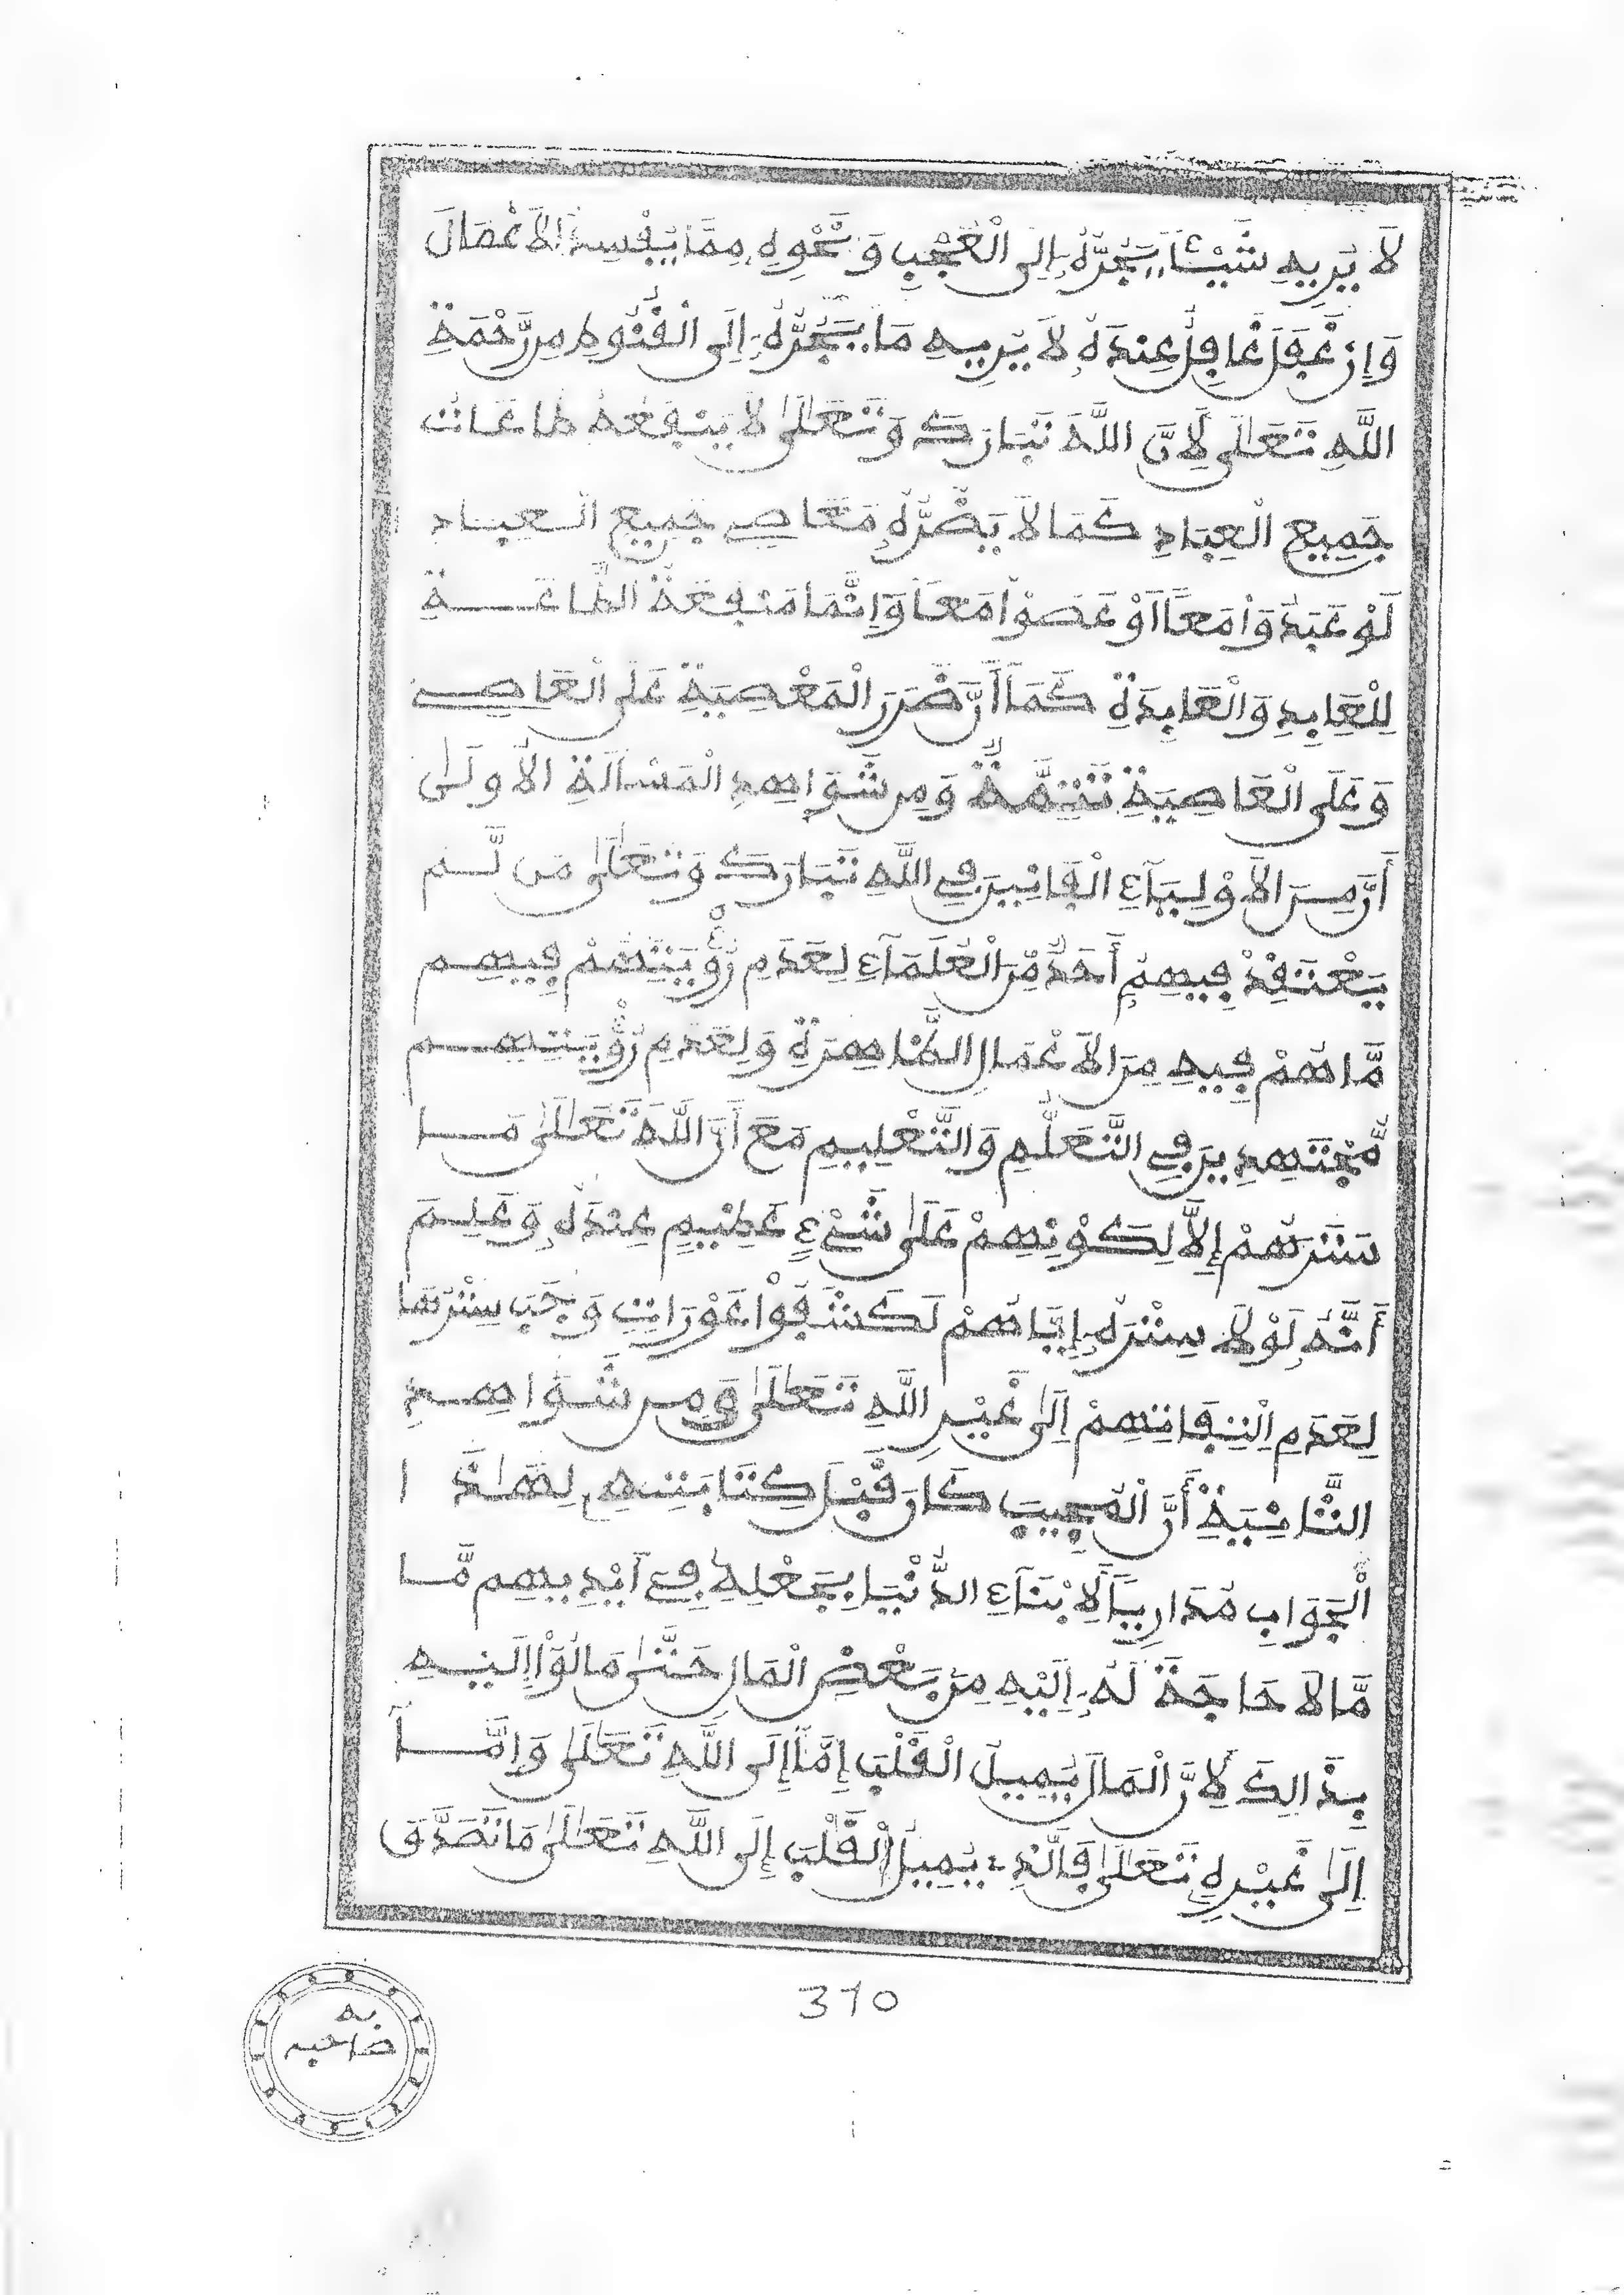 لَا يُرِيهِ شَيْـًٔا يَجُرُّهُ إِلَى الْعُجْبِ وَنَحْوِهِ مِمَّا يُفْسِدُ الْأَعْمَالَ
وَإِنْ غَفَلَ غَافِلٌ عِنْدَهُ لَا يُرِيهِ مَا يَجُرُّهُ إِلَى الْقُنُوطِ مِن رَّحْمَةِ
اللَّهِ تَعَالَى لِأَنَّ اللَّهَ تَبَارَكَ وَتَعَالَى لَا يَنْفَعُهُ طَاعَاتُ
جَمِيعِ الْعِبَادِ كَمَا لَا يَضُرُّهُ مَعَاصِي جَمِيعِ الْعِبَادِ
لَوْ عَبَدُوا مَعًا أَوْ عَصَوْا مَعًا وَإِنَّمَا مَنْفَعَةُ الطَّاعَةِ
لِلْعَابِدِ وَالْعَابِدَةِ كَمَا أَنَّ ضَرَرَ الْمَعْصِيَةِ عَلَى الْعَاصِي
وَعَلَى الْعَاصِيَةِ تَتِمَّةٌ وَمِن شَوَاهِدِ الْمَسْأَلَةِ الْأُولَى
أَنَّ مِنَ الْأَوْلِيَاءِ الْفَانِينَ فِي اللَّهِ تَبَارَكَ وَتَعَالَى مَن لَّمْ
يَعْتَقِدْ فِيهِمْ أَحَدٌ مِّنَ الْعُلَمَاءِ لِعَدَمِ رُؤْيَتِهِمْ فِيهِم
مَّا هُمْ فِيهِ مِنَ الْأَعْمَالِ الظَّاهِرَةِ وَلِعَدَمِ رُؤْيَتِهِم
مُّجْتَهِدِينَ فِي التَّعَلُّمِ وَالتَّعْلِيمِ مَعَ أَنَّ اللَّهَ تَعَالَى مَا
سَتَرَهُمْ إِلَّا لِكَوْنِهِمْ عَلَى شَيْءٍ عَظِيمٍ عِنْدَهُ وَعَلِمَ
أَنَّهُ لَوْلَا سِتْرُهُ إِيَّاهُمْ لَكَشَفُوا عَوْرَاتٍ وَجَبَ سِتْرُهَا
لِعَدَمِ الْتِفَاتِهِمْ إِلَى غَيْرِ اللَّهِ تَعَالَى وَمِن شَوَاهِدِ
الثَّانِيَةِ أَنَّ الْمُجِيبَ كَانَ قَبْلَ كِتَابَتِهِ لِهَٰذَا
الْجَوَابِ مُدَارِيًا لِأَبْنَاءِ الدُّنْيَا بِجَعْلِهِ فِي أَيْدِيهِم مَّا
مَّا لَا حَاجَةَ لَهُ إِلَيْهِ مِنْ بَعْضِ الْمَالِ حَتَّى مَالُوا إِلَيْهِ
بِذَالِكَ لِأَنَّ الْمَالَ يُمِيلُ الْقَلْبَ إِمَّا إِلَى اللَّهِ تَعَالَى وَإِمَّا
إِلَى غَيْرِهِ تَعَالَى فَالَّذِي يُمِيلُ الْقَلْبَ إِلَى اللَّهِ تَعَالَى مَا تَصَدَّقَ
310